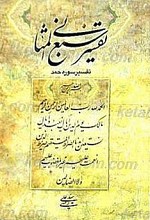 تفسیر سبع المثانی
تفسیر سوره حمد
الحمد لله رب العالمین الرحمن الرحیم
مالک یوم الدین ایاک نعبد و ایاک
نستعین اهدنا الصراط المستقیم صراط الذین
انعمت علیهم غیر المغضوب علیهم
ولا الضالین